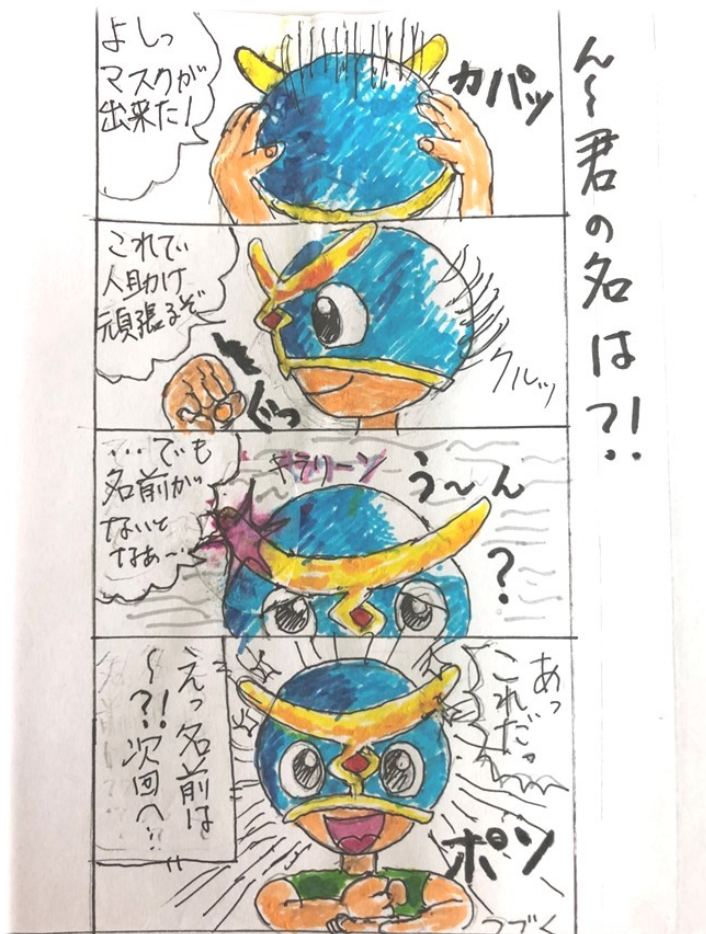 ん〜君の名は?!
よしっ
マスクが
出来た!
カパッ
これで
人助け
頑張るぞ
ぐっ
クルッ
…でも
名前が
ないと
なあ〜…
キラリーン
う〜ん
?
あっ
これだっ
えっ名前は
〜?!次回へ…
ポン
つづく